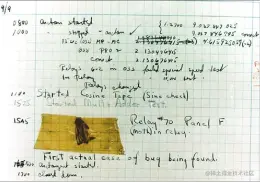 9/9
0800 antan started
1000 " stopped - antan
13" uc (032) MP - MC
(033) PRO 2 2.130476415
conect 2.130676415
Relays 6-2 in 033 failed special speed test
in relay
Relays changed
1100 Started Cosine Tape (Sine check)
1525 Started Multi Adder Test.
1545 Relay #70 Panel F
(moth) in relay.
First actual case of bug being found.
antangent started.
1700 closed down.
@稀土掘金技术社区